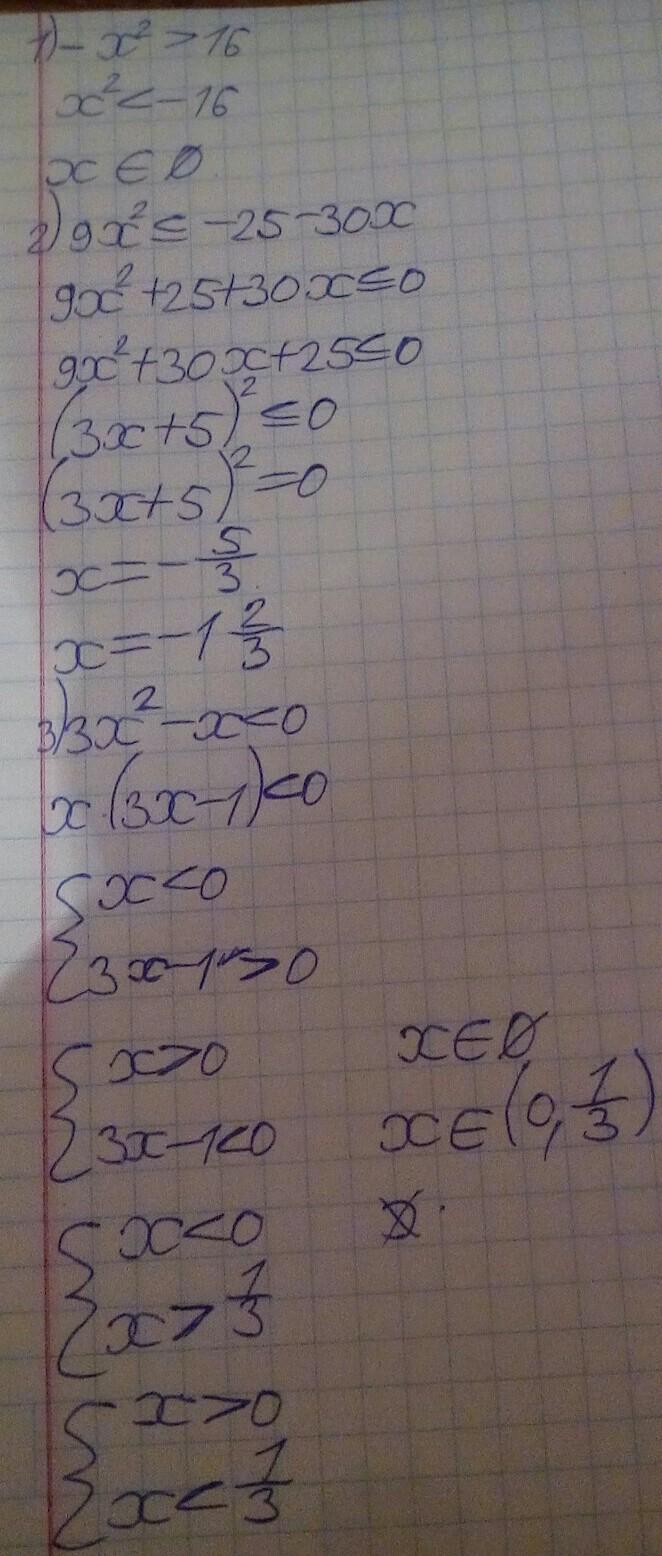 1) -x² > 16
x² < -16
x ∈ ∅
2) 9x² ≤ -25 -30x
9x² +25+30x ≤ 0
9x² +30x+25 ≤ 0
(3x+5)² ≤ 0
(3x+5)² = 0
x = -5/3
x = -1 2/3
3) 3x² - x < 0
x·(3x-1) < 0
{ x < 0
3x-1 > 0
{ x > 0
3x-1 < 0
x ∈ ∅
x ∈ (0, 1/3)
{ x < 0
x > 1/3
{ x > 0
x < 1/3